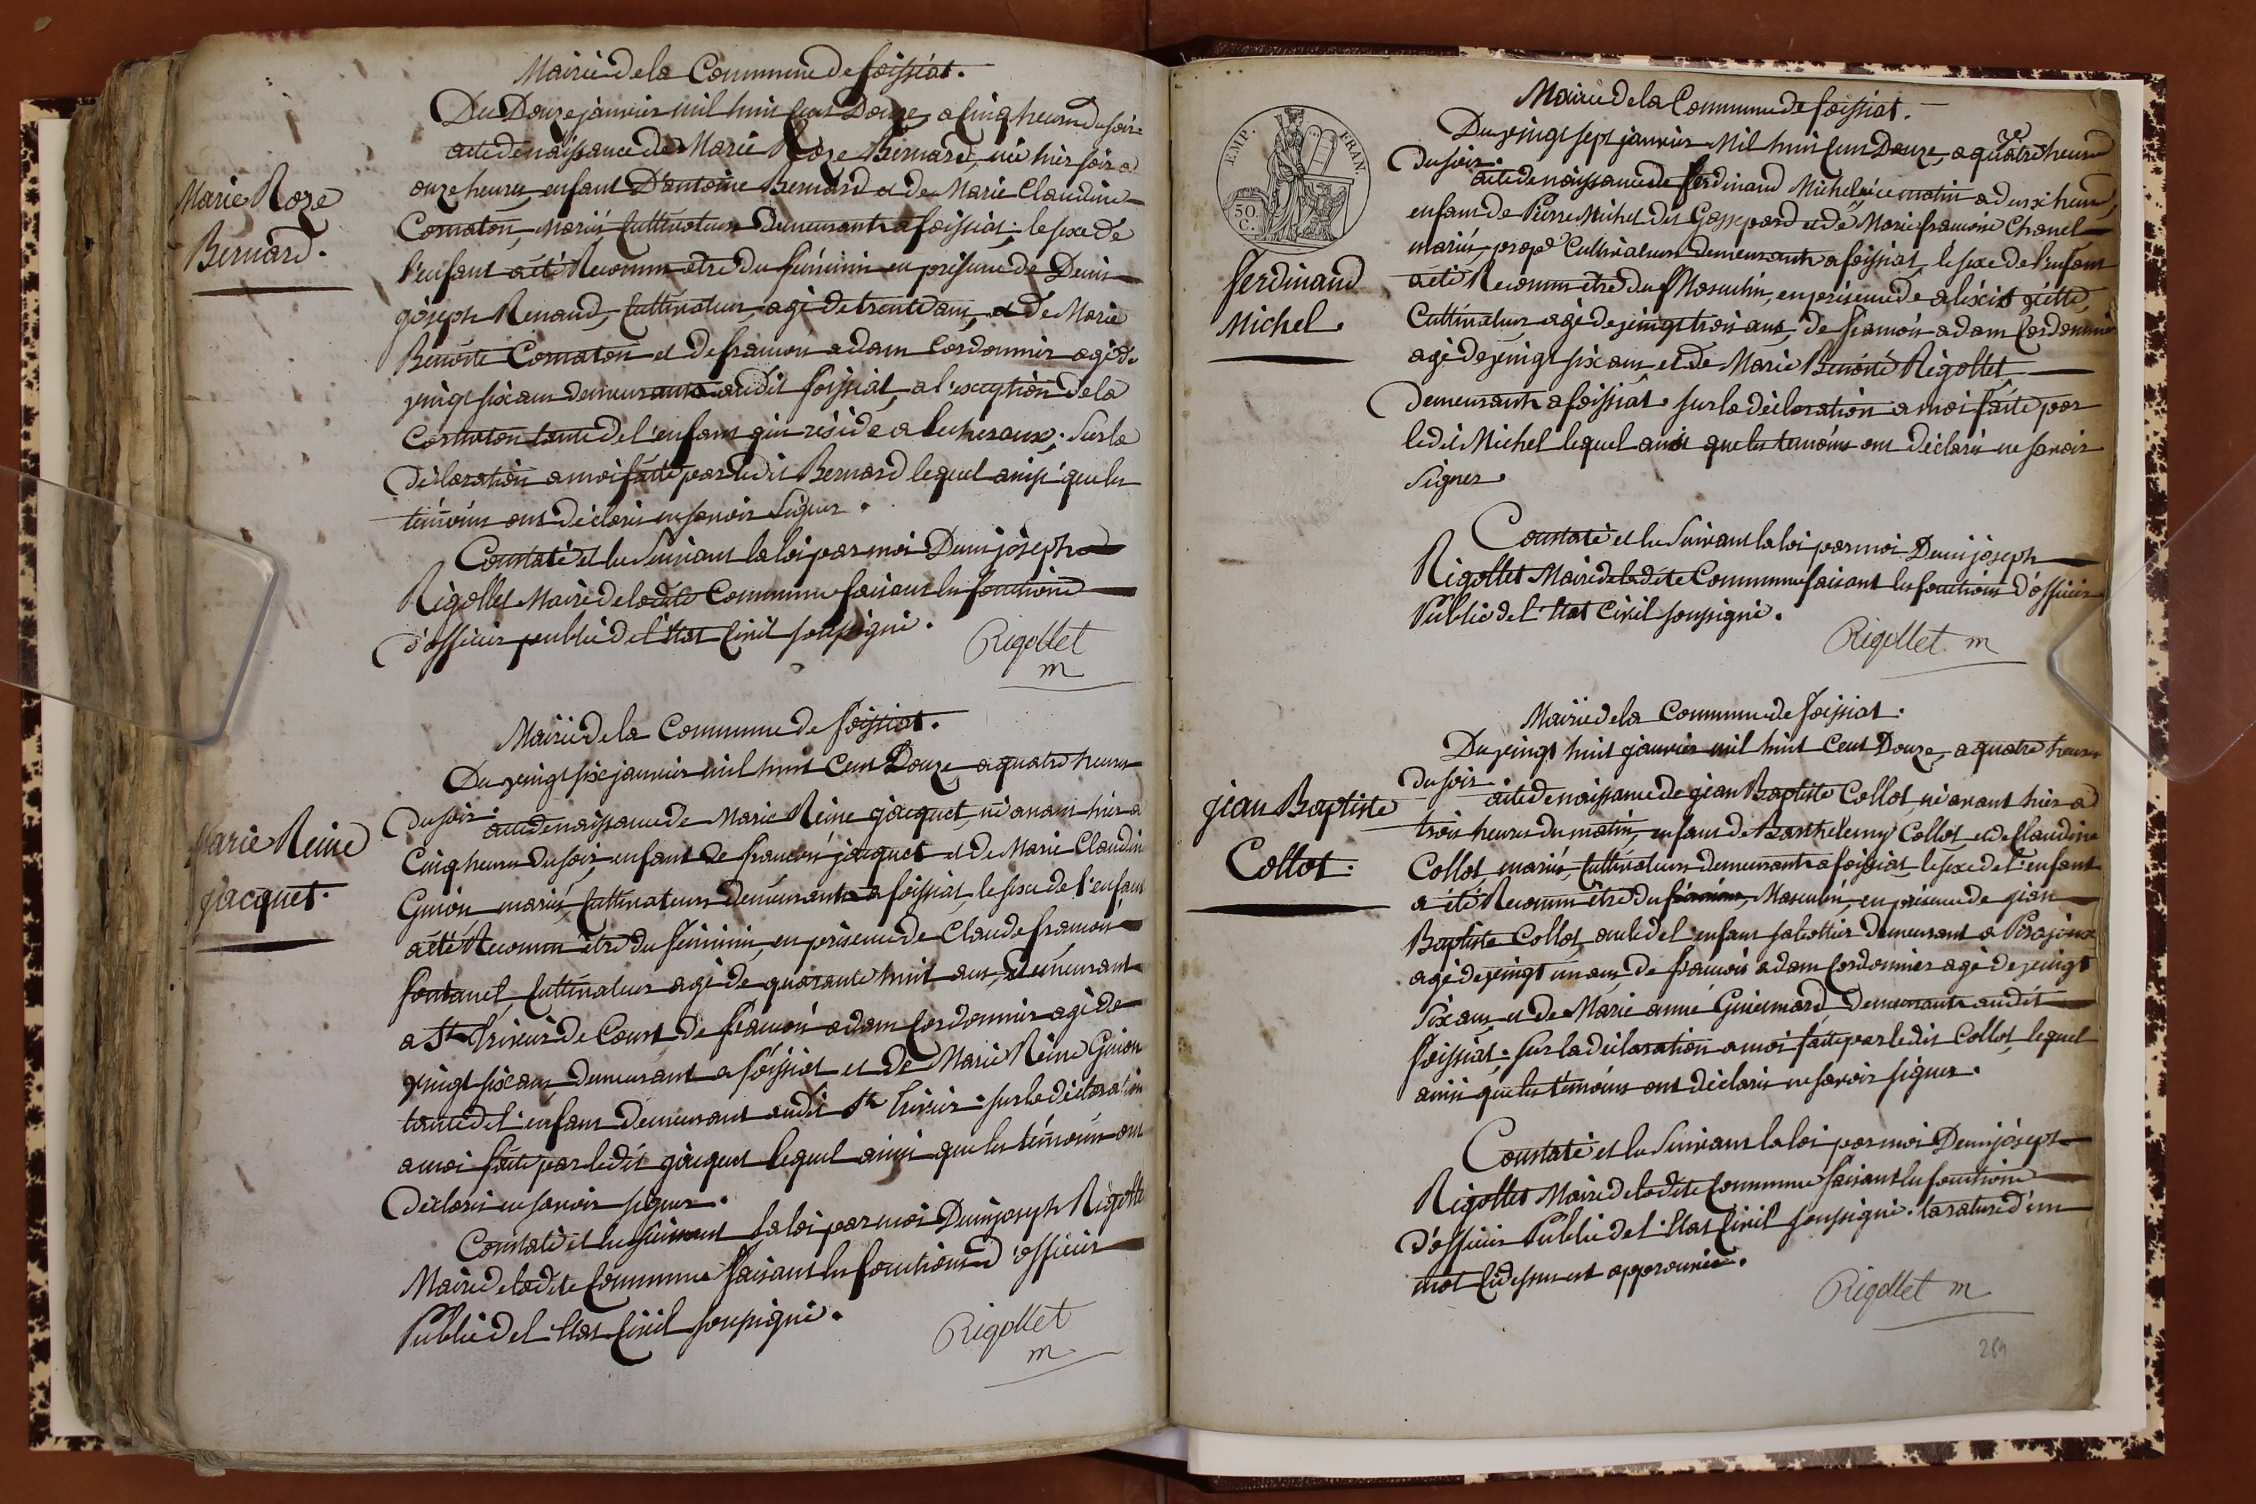 Mairie de la Commune de foissiat.
Du Douze janvier mil huit Cent Douze, a Cinq heures du soir
acte de naissance de Marie Roze Bernard, née hier soir a
Marie Roze
Bernard.
onze heures, enfant D'antoine Bernard et de Marie Claudine
Cornaton, mariés, Cultivateurs Demeurants a foissiat; le sexe de
l'enfant a été Reconnu etre du féminin en présence de Denis
joseph Renaud, Cultivateur, agé de trente ans, et de Marie
Benoite Cornaton et de francois adam Cordonnier agé de
vingt six ans demeurants audit foissiat, a l'exception de la
Cornaton tante de l'enfant qui réside a . Sur la
Déclaration a moi faite par ledit Bernard lequel ainsi que les
témoins ont déclaré ne savoir Signer.
Constaté et lu Suivant la loi par moi Denis joseph
Rigollet Maire de ladite Commune faisant les fonctions
d'officier public de l'état Civil soussigné.
Rigollet
m
Mairie de la Commune de foissiat.
Du vingt six janvier mil huit Cent Douze, a quatre heures
du soir
acte de naissance de Marie Reine jacquet, né avant hier a
Marie Reine
jacquet.
Cinq heures du soir, enfant de francois jacquet et de Marie Claudine
Guion mariés, Cultivateurs demeurants a foissiat, le sexe de l'enfant
a été Reconnu être du féminin, en présence de Claude francois
fontanel, Cultivateur agé de quarante huit ans, demeurant
a St Trivier de Court, de francois adam Cordonnier agé de
vingt six ans, demeurant a foissiat et de Marie Reine Guion
tante de l'enfant demeurant audit St Trivier. sur la déclaration
a moi faite par ledit jacquet lequel ainsi que les témoins ont
Déclaré ne savoir signer.
Constaté et lu suivant la loi par moi Denis joseph Rigollet
Maire de ladite Commune faisant les fonctions d'officier
Public de l'état Civil soussigné.
Rigollet
m
EMP. FRAN.
50
C.
Mairie de la Commune de foissiat.
Du vingt sept janvier Mil huit Cent Douze, a quatre heures
Du soir.
acte de naissance de ferdinand Michel né ce matin a deux heures,
ferdinand
Michel.
enfant de Pierre Michel dit Gasspard et de Marie francoise Chanel
mariés, prop.e Cultivateurs demeurants a foissiat, le sexe de l'enfant
a été Reconnu être du Masculin, en présence de alexis
Cultivateur agé de vingt trois ans, de francois adam Cordonnier
agé de vingt six ans, et de Marie Benoite Rigollet
Demeurants a foissiat. sur la déclaration a moi faite par
ledit Michel lequel ainsi que les temoins ont déclaré ne savoir
Signer.
Constaté et lu Suivant la loi par moi Denis joseph
Rigollet Maire de ladite Commune faisant les fonctions d'officier
Public de l'état Civil soussigné.
Rigollet m
Mairie de la Commune de foissiat.
Du vingt huit janvier mil huit Cent Douze, a quatre heures
du soir
acte de naissance de jean Baptiste Collot, né avant hier a
jean Baptiste
Collot.
trois heures du matin, enfant de Barthelemy Collot et de Claudine
Collot, mariés, Cultivateurs demeurants a foissiat, le sexe de l'enfant
a été Reconnu être du féminin, Masculin, en présence de jean
Baptiste Collot, oncle de l'enfant sabottier demeurant a Pirajoux
agé de vingt un ans, de francois adam Cordonnier agé de vingt
six ans, et de Marie anne Guiermard, Demeurants audit
foissiat. Sur la déclaration a moi faite par ledit Collot, lequel
ainsi que les témoins ont déclaré ne savoir signer.
Constaté et lu Suivant la loi par moi Denis joseph
Rigollet Maire de ladite Commune faisant les fonctions
d'officier Public de l'état Civil soussigné. la rature d'un
mot Ci dessus est approuvée.
Rigollet m
269